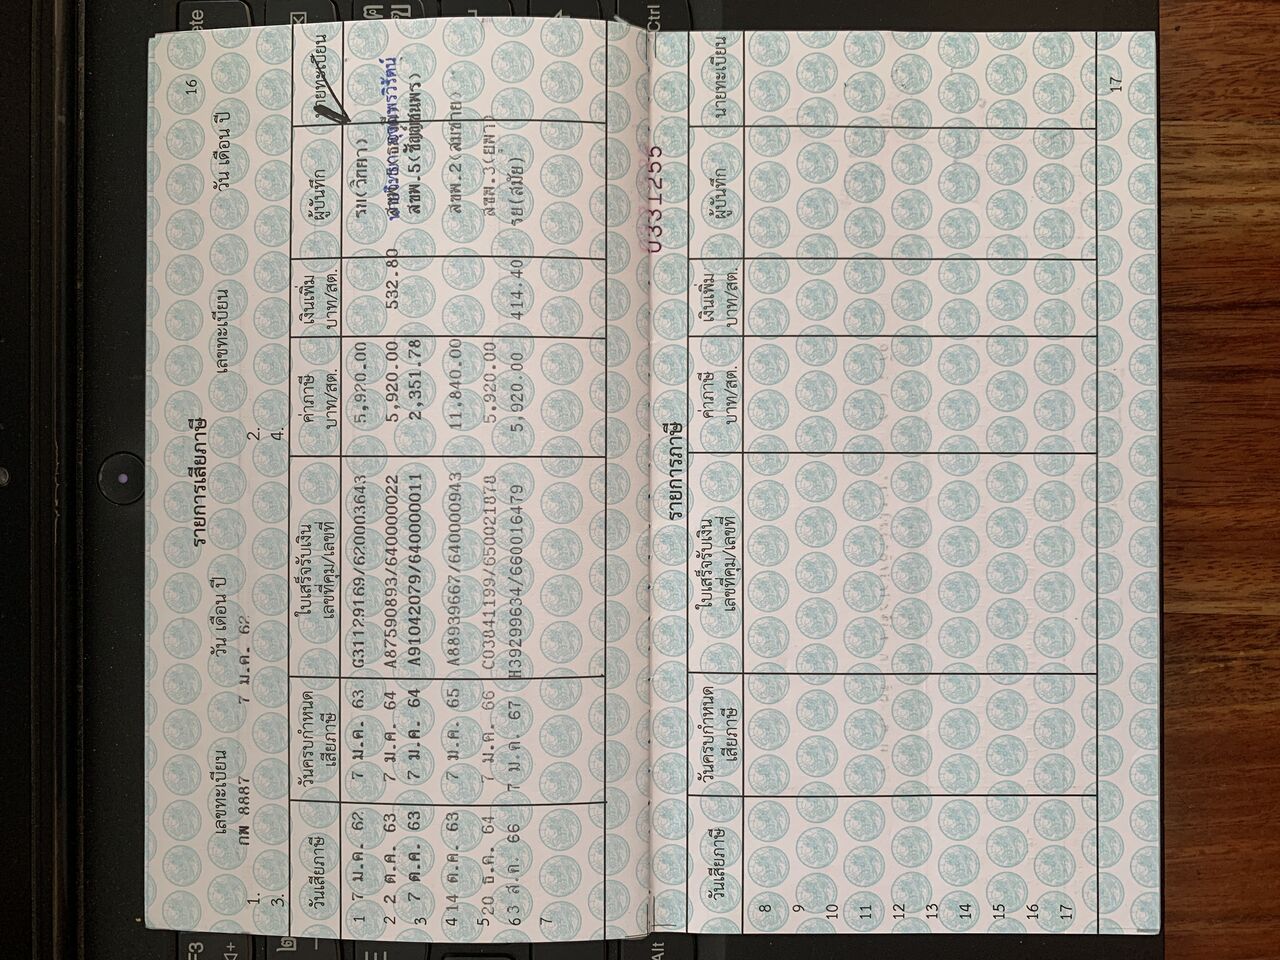 16
รายการเสียภาษี
เลขทะเบียน วัน เดือน ปี เลขทะเบียน วัน เดือน ปี
1. กพ 8887 7 ม.ค. 62 2.
3. 4.
วันเสียภาษี วันครบกำหนดเสียภาษี ใบเสร็จรับเงิน เลขที่คุม/เลขที่ ค่าภาษี บาท/สต. เงินเพิ่ม บาท/สต. ผู้บันทึก นายทะเบียน
1 7 ม.ค. 62 7 ม.ค. 63 G31129169/620003643 5,920.00 รย(วิทยา)
2 2 ต.ค. 63 7 ม.ค. 64 A87590893/640000022 5,920.00 532.80
3 7 ต.ค. 63 7 ม.ค. 64 A91042079/640000011 2,351.78 สขพ.5
4 14 ต.ค. 63 7 ม.ค. 65 A88939667/640000943 11,840.00 สขพ.2(สมชาย)
5 20 ธ.ค. 64 7 ม.ค. 66 C03841199/650021878 5,920.00 สขพ.3
6 3 ส.ค. 66 7 ม.ค. 67 H39299634/660016479 5,920.00 414.40 รย(สมัย)
7
0331255
รายการภาษี
วันเสียภาษี วันครบกำหนดเสียภาษี ใบเสร็จรับเงิน เลขที่คุม/เลขที่ ค่าภาษี บาท/สต. เงินเพิ่ม บาท/สต. ผู้บันทึก นายทะเบียน
8
9
10
11
12
13
14
15
16
17
17